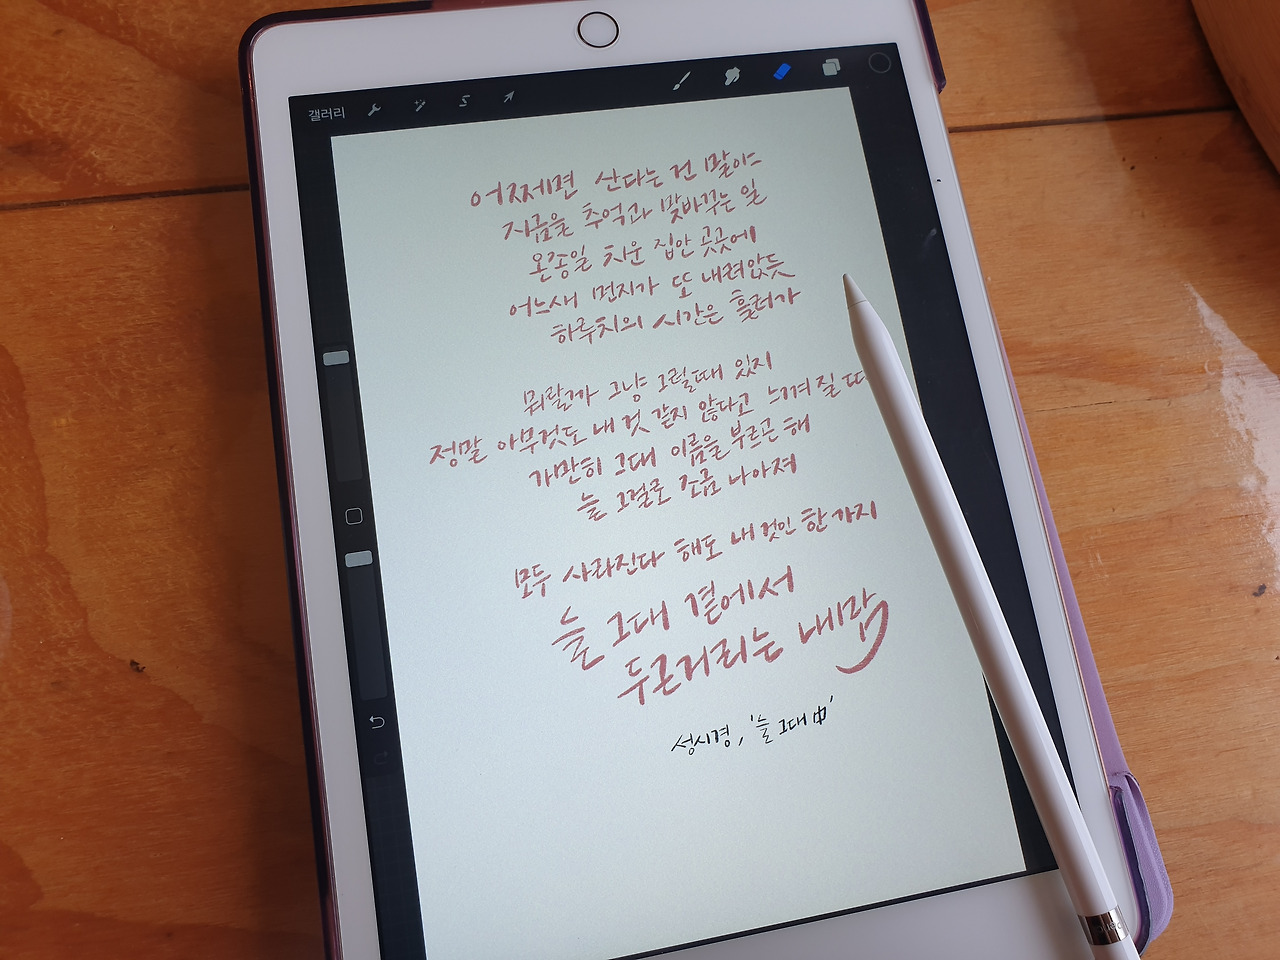 갤러리
어쩌면 산다는 건 말야
지금을 추억과 맞바꾸는 일
온종일 치운 집안 곳곳에
어느새 먼지가 또 내려앉듯
하루치의 시간은 흘러가
뭐랄까 그냥 그럴때 있지
정말 아무것도 내 것 같지 않다고 느껴 질
가만히 그대 이름을 부르곤 해
늘 그걸로 조금 나아져
모두 사라진다 해도 내 것인 한 가지
늘 그대 곁에서
두근거리는 내맘
성시경, '늘 그대 中'